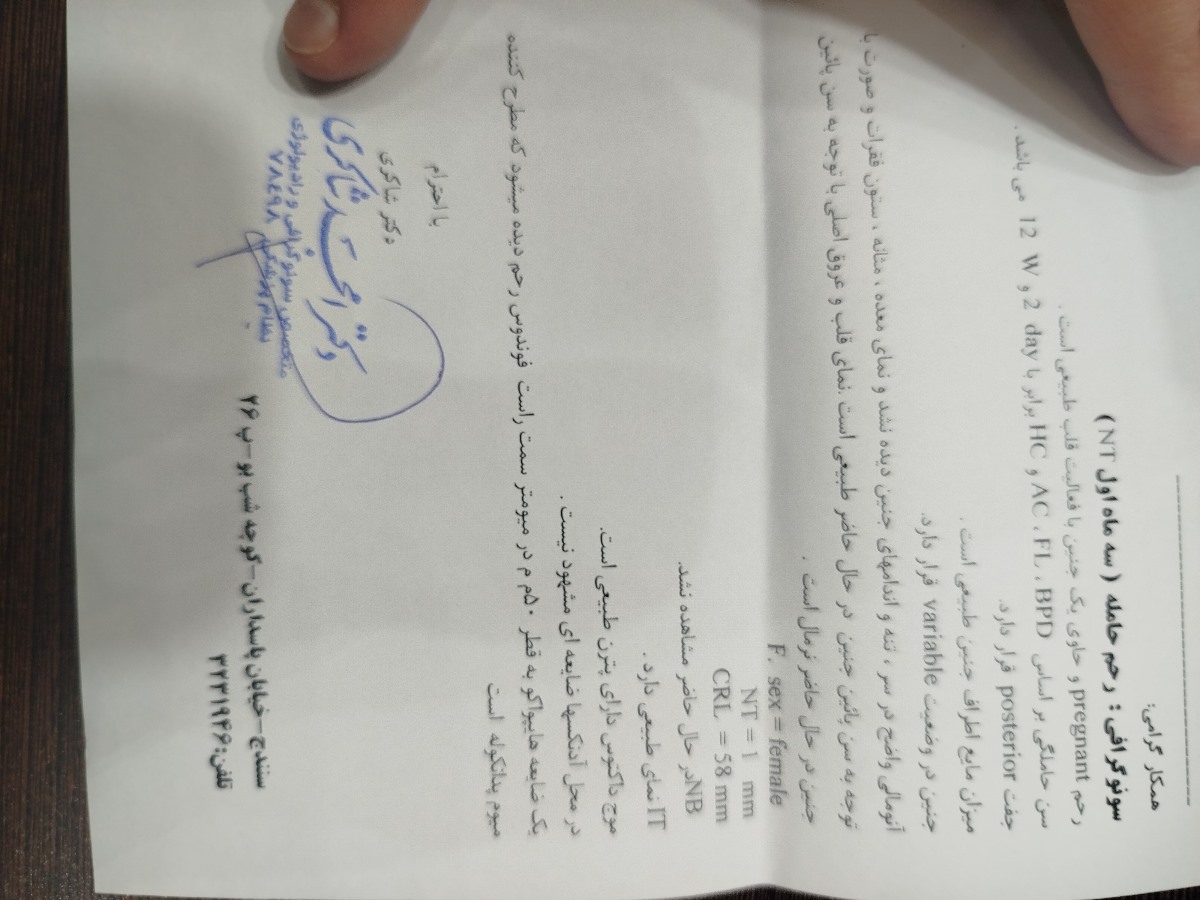 همکار گرامی:
سونوگرافی : رحم حامله ( سه ماه اول NT )
رحم pregnant و حاوی یک جنین با فعالیت قلب طبیعی است .
سن حاملگی بر اساس AC ، FL ، BPD و HC برابر با 2 day و 12 W می باشد .
جفت posterior قرار دارد.
میزان مایع اطراف جنین طبیعی است .
جنین در وضعیت variable قرار دارد.
آنومالی واضح در سر ، تنه و اندامهای جنین دیده نشد و نمای معده ، مثانه ، ستون فقرات و صورت با
توجه به سن پائین جنین در حال حاضر طبیعی است .نمای قلب و عروق اصلی با توجه به سن پائین
جنین در حال حاضر نرمال است .
F. sex = female
NT = 1 mm
CRL = 58 mm
NBدر حال حاضر مشاهده نشد.
IT نمای طبیعی دارد .
موج داکتوس دارای پترن طبیعی است.
در محل آدنکسها ضایعه ای مشهود نیست .
یک ضایعه هایپواکو به قطر ۵۰م م در میومتر سمت راست فوندوس رحم دیده میشود که مطرح کننده
میوم پدانکوله است
با احترام
دکتر شاکری
دکتر محمد شاکری
متخصص سونوگرافی و رادیولوژی
نظام پزشکی ۷۸۴۹۸
سنندج–خیابان پاسداران–کوچه شب بو–پ ۲۶
تلفن:۳۳۲۳۱۹۴۶